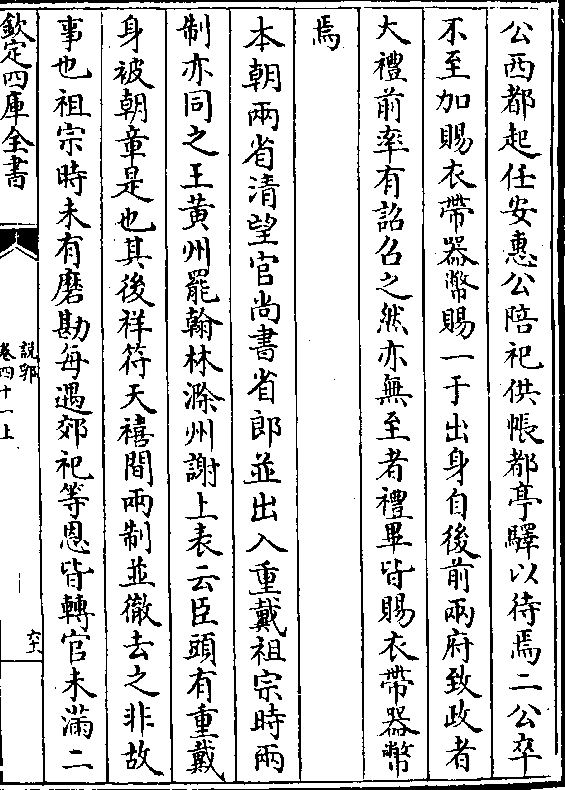 公西都起任安惠公陪祀供帳都亭驛以待焉二公卒
不至加賜衣帶器幣賜一子出身自後前兩府致政者
大禮前率有詔召之然亦無至者禮畢皆賜衣帶器幣
焉
本朝兩省清望官尚書省郎並出入重戴祖宗時兩
制亦同之王黄州罷翰林滁州謝上表云臣頭有重戴
身被朝章是也其後祥符天禧間兩制並徹去之非故
事也祖宗時未有磨勘每遇郊祀等恩皆轉官未滿二
欽定四庫全書
説郛
卷四十一上